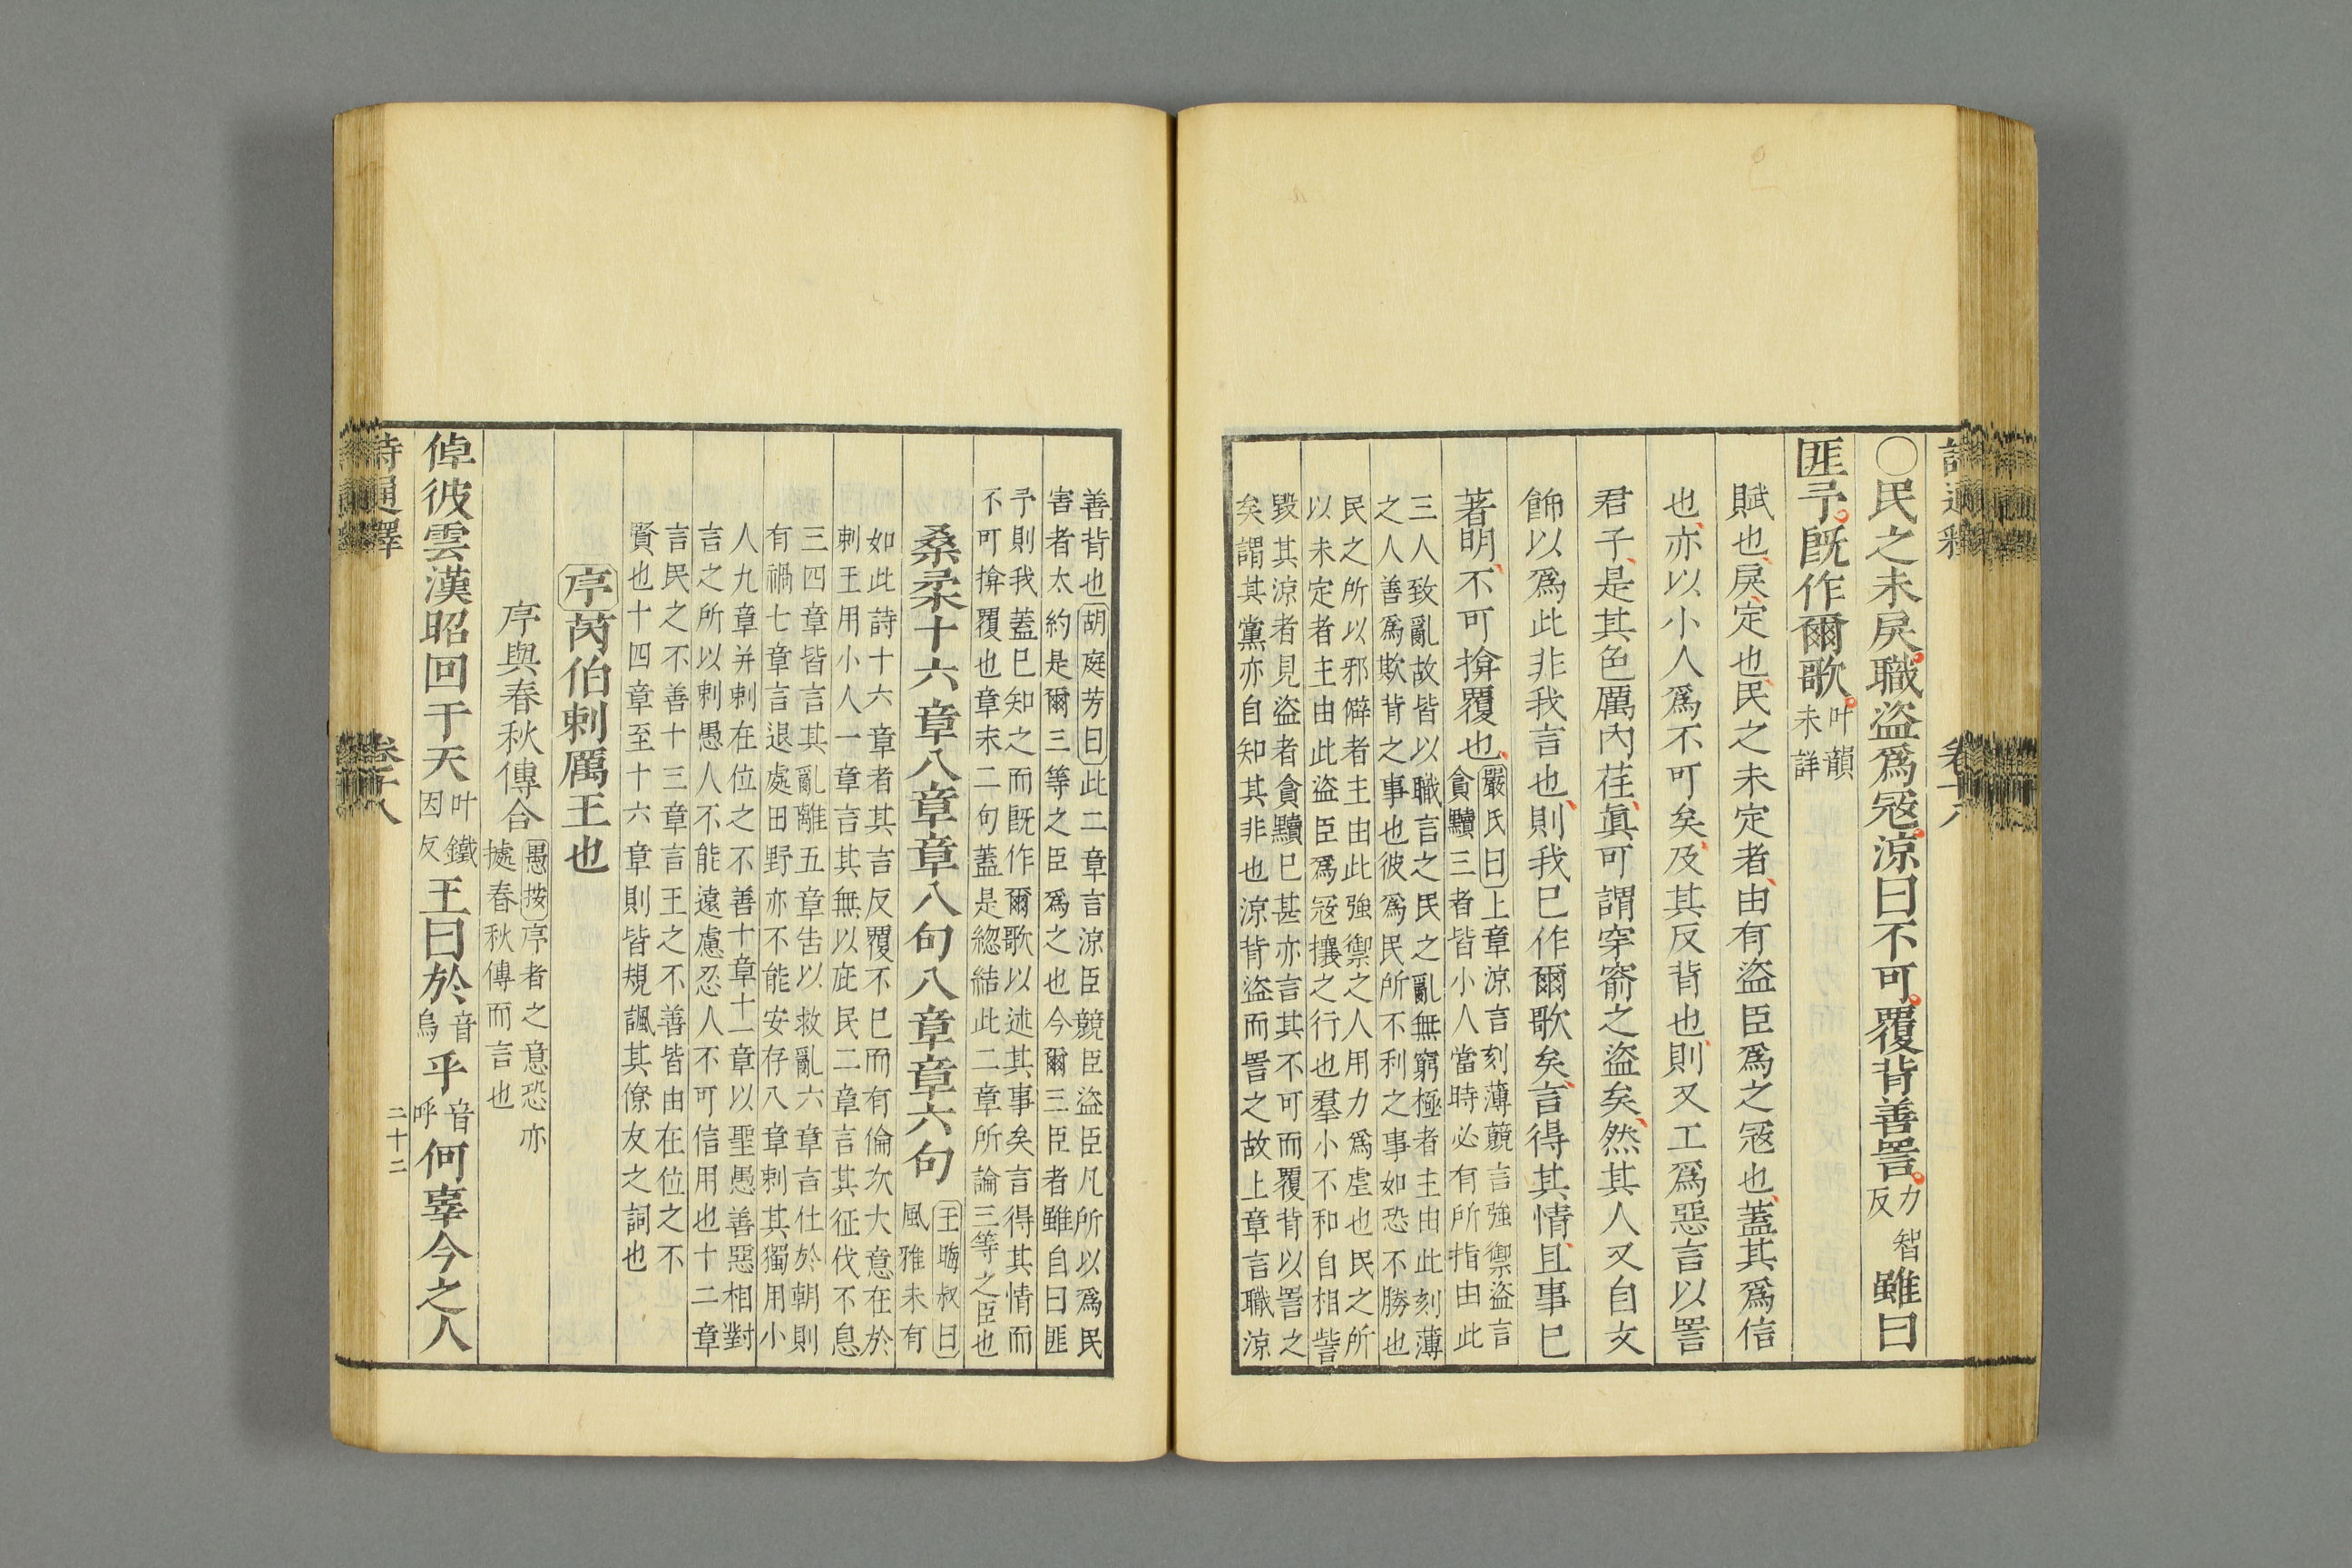 ○民之未戾職盗爲寇涼曰不可覆背善詈力智反雖曰
匪予既作爾歌叶韻未詳
賦也戾定也民之未定者由有盗臣爲之寇也蓋其爲信
也亦以小人爲不可矣及其反背也則又工爲惡言以詈
君子是其色厲內荏真可謂穿窬之盗矣然其人又自文
飾以爲此非我言也則我已作爾歌矣言得其情且事已
著明不可揜覆也
嚴氏曰上章涼言刻薄競言強禦盗言
貪黷三者皆小人當時必有所指由此
三人致亂故皆以職言之民之亂無窮極者主由此刻薄
之人善爲欺背之事也彼爲民所不利之事如恐不勝也
民之所以邪僻者主由此強禦之人用力爲虐也民之所
以未定者主由此盗臣爲寇攘之行也羣小不和自相訾
毀其涼者見盗者貪黷已甚亦言其不可而覆背以詈之
矣謂其黨亦自知其非也涼背盗而詈之故上章言職涼
善背也胡庭芳曰此二章言涼臣競臣盗臣凡所以爲民
害者太約是爾三等之臣爲之也今爾三臣者雖自曰匪
予則我蓋已知之而既作爾歌以述其事矣言得其情而
不可揜覆也章末二句蓋是緫結此二章所論三等之臣也
桑柔十六章八章章八句八章章六句
王晦叔曰
風雅未有
如此詩十六章者其言反覆不已而有倫次大意在於
刺王用小人一章言其無以庇民二章言其征伐不息
三四章皆言其亂離五章告以救亂六章言仕於朝則
有禍七章言退處田野亦不能安存八章刺其獨用小
人九章并刺在位之不善十章十一章以聖愚善惡相對
言之所以刺愚人不能遠慮忍人不可信用也十二章
言民之不善十三章言王之不善皆由在位之不
賢也十四章至十六章則皆規諷其僚友之詞也
序芮伯刺厲王也
序與春秋傳合
愚按序者之意恐亦
據春秋傳而言也
倬彼雲漢昭回于天叶鐵因反王曰於音烏乎音呼何辜今之人
詩通釋
卷十八
二十二